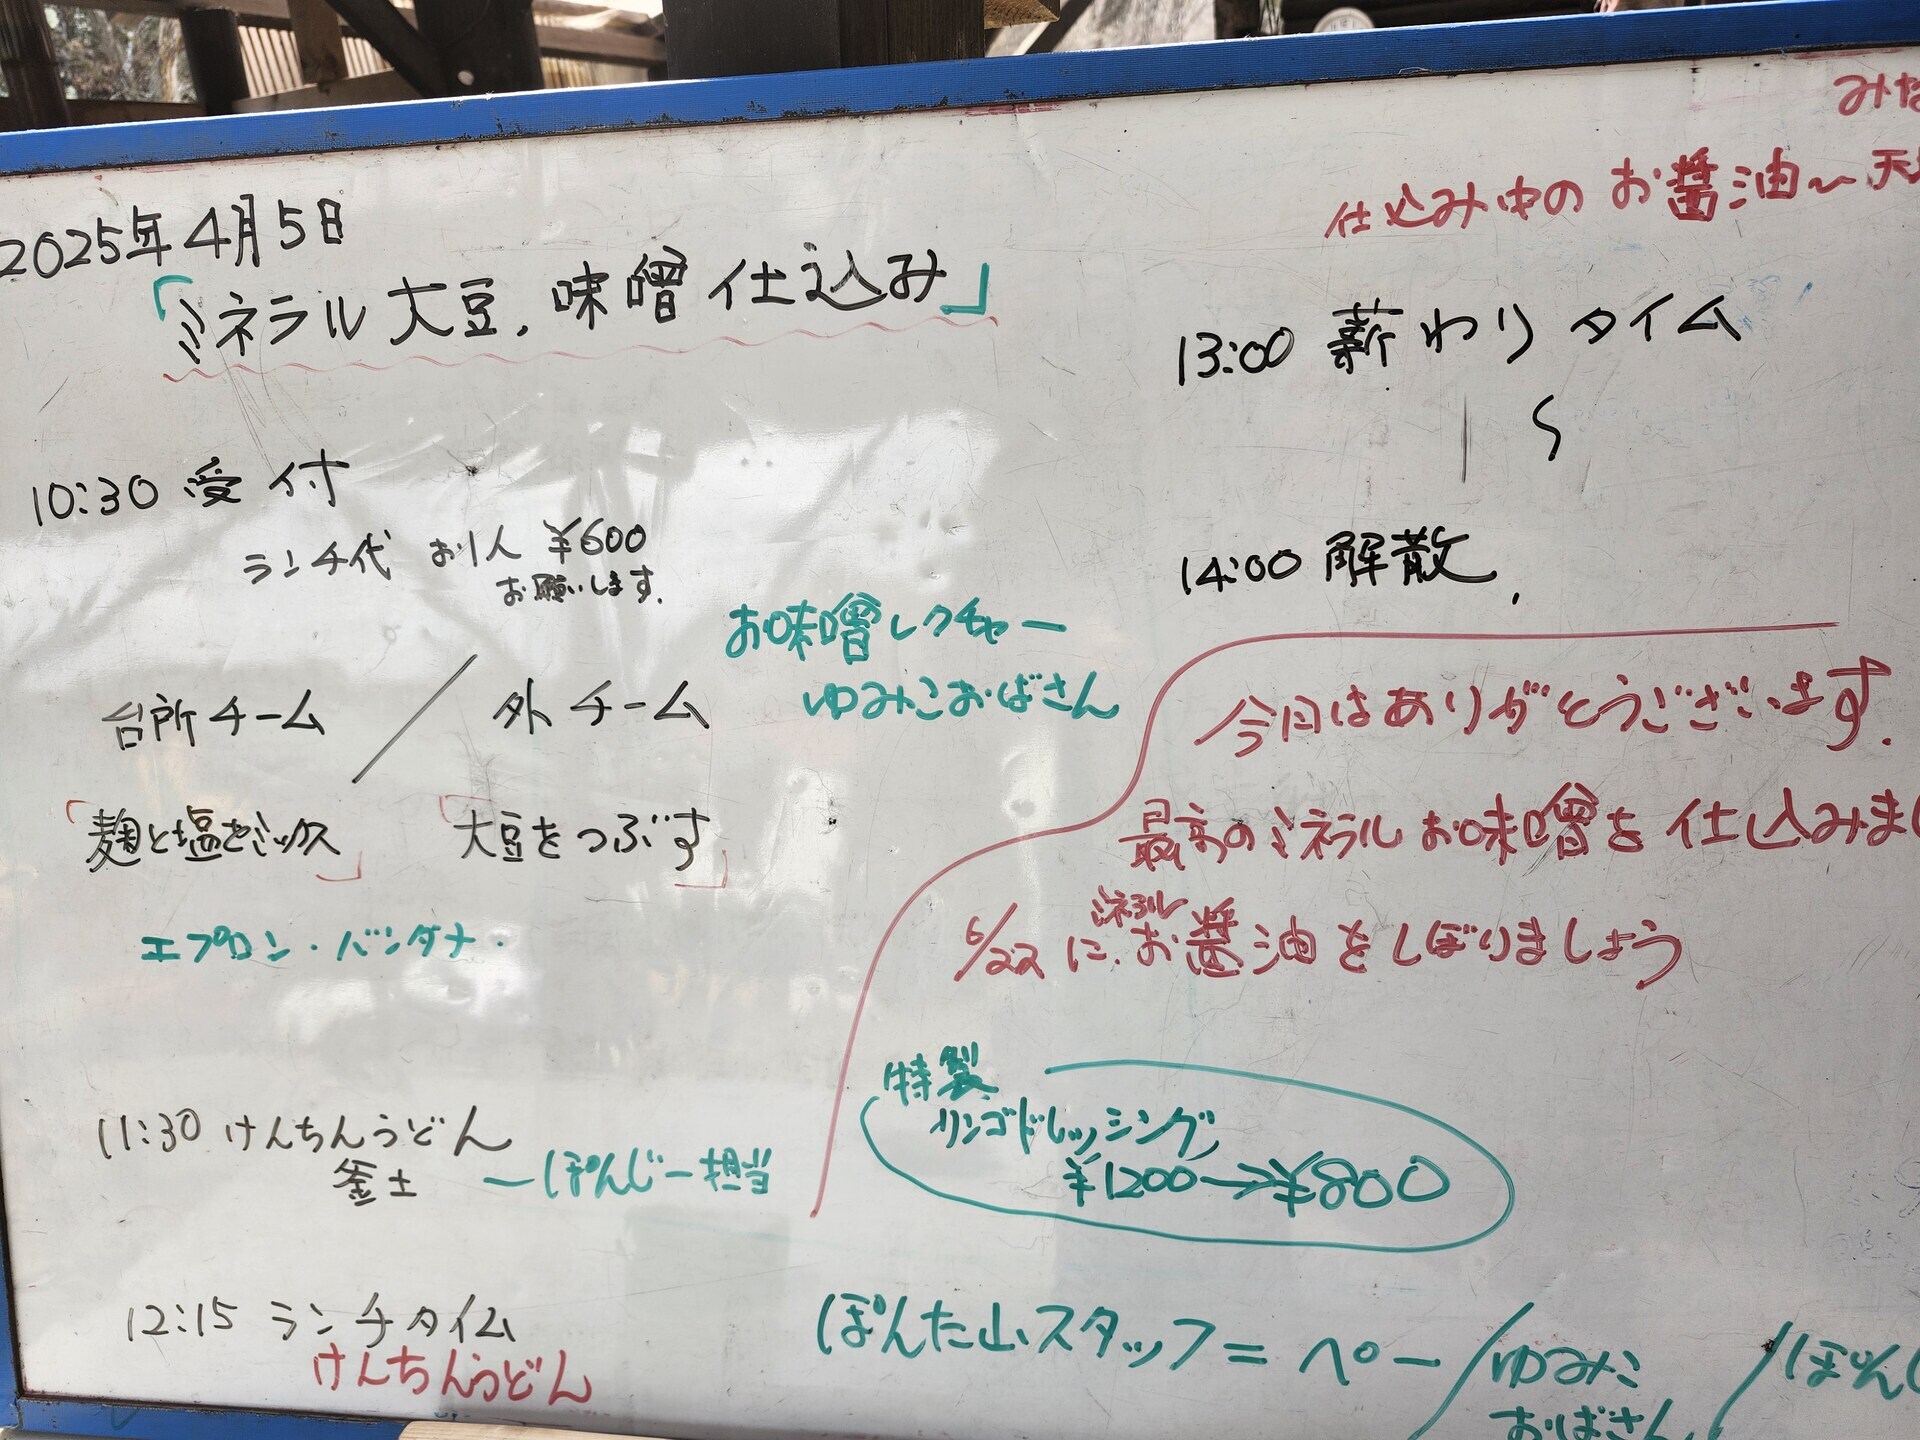 2025年4月5日
「ミネラル大豆.味噌仕込み」
10:30 受付
ランチ代 お1人 ¥600
お願いします.
お味噌レクチャー
ゆみこおばさん
台所チーム / 外チーム
「麹と塩をミックス」 「大豆をつぶす」
エプロン・バンダナ・
11:30 けんちんうどん
釜土 ーぽんじー担当
12:15 ランチタイム
けんちんうどん
みな
仕込み中のお醤油〜天
13:00 薪わりタイム
〜
14:00 解散.
今日はありがとうございます.
最高のミネラルお味噌を仕込みまし
6/22 に.ミネラルお醤油をしぼりましょう
特製
リンゴドレッシング
¥1200→¥800
ぽんた山スタッフ = ペー/ゆみこ/ぽんじ
おばさん